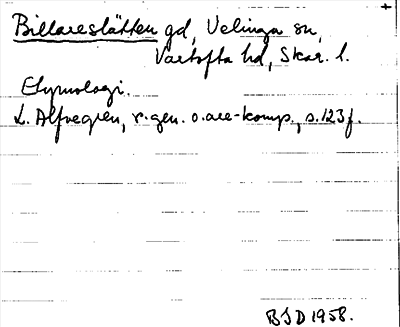 Billareslätten gd, Velinga sn,
Vartofta hd, Skar. l.
Etymologi.
L. Alfvegren, r-gen. o. are-komp., s. 123 f.
BSD 1958.